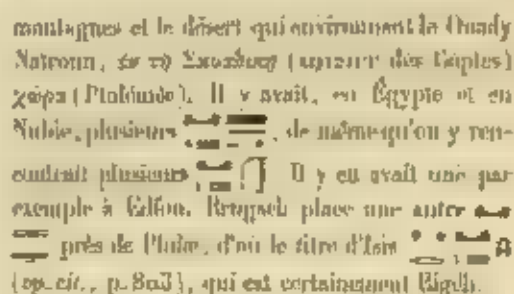 montagnes et le désert qui environnent la Ouady
Natroun, ἐν τῇ (des Coptes)
χώρα (Ptolémée). Il y avait, en Égypte et en
Nubie, plusieurs , de même qu'on y ren-
contrait plusieurs Il y en avait une par
exemple à Edfou. Brugsch place une autre
près de Philæ, d'où le titre d'Isis
(op. cit., p. ), qui est certainement Bigeh.